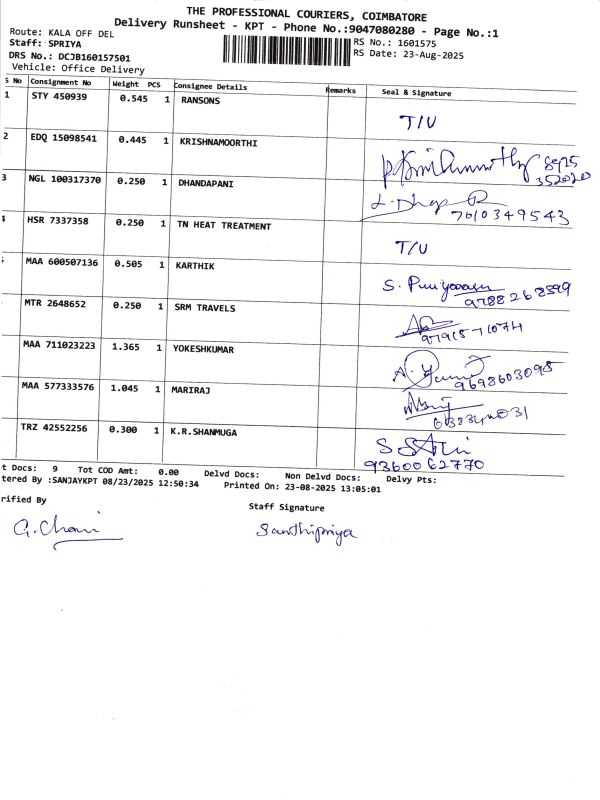 THE PROFESSIONAL COURIERS, COIMBATORE
Delivery Runsheet - KPT - Phone No.:9047080280 - Page No.:1
Route: KALA OFF DEL
Staff: SPRIYA
RS No.: 1601575
DRS No.: DCJB160157501
RS Date: 23-Aug-2025
Vehicle: Office Delivery
S No Consignment No Weight PCS Consignee Details Remarks Seal & Signature
1 STY 450939 0.545 1 RANSONS T/U
2 EDQ 15098541 0.445 1 KRISHNAMOORTHI 8925
352020
3 NGL 100317370 0.250 1 DHANDAPANI 7010349543
4 HSR 7337358 0.250 1 TN HEAT TREATMENT T/U
MAA 600507136 0.505 1 KARTHIK S.
9788268599
MTR 2648652 0.250 1 SRM TRAVELS
MAA 711023223 1.365 1 YOKESHKUMAR A.
9698603098
MAA 577333576 1.045 1 MARIRAJ
TRZ 42552256 0.300 1 K.R.SHANMUGA
9360062770
t Docs: 9 Tot COD Amt: 0.00 Delvd Docs: Non Delvd Docs: Delvy Pts:
tered By :SANJAYKPT 08/23/2025 12:50:34 Printed On: 23-08-2025 13:05:01
rified By Staff Signature
Santhipriya